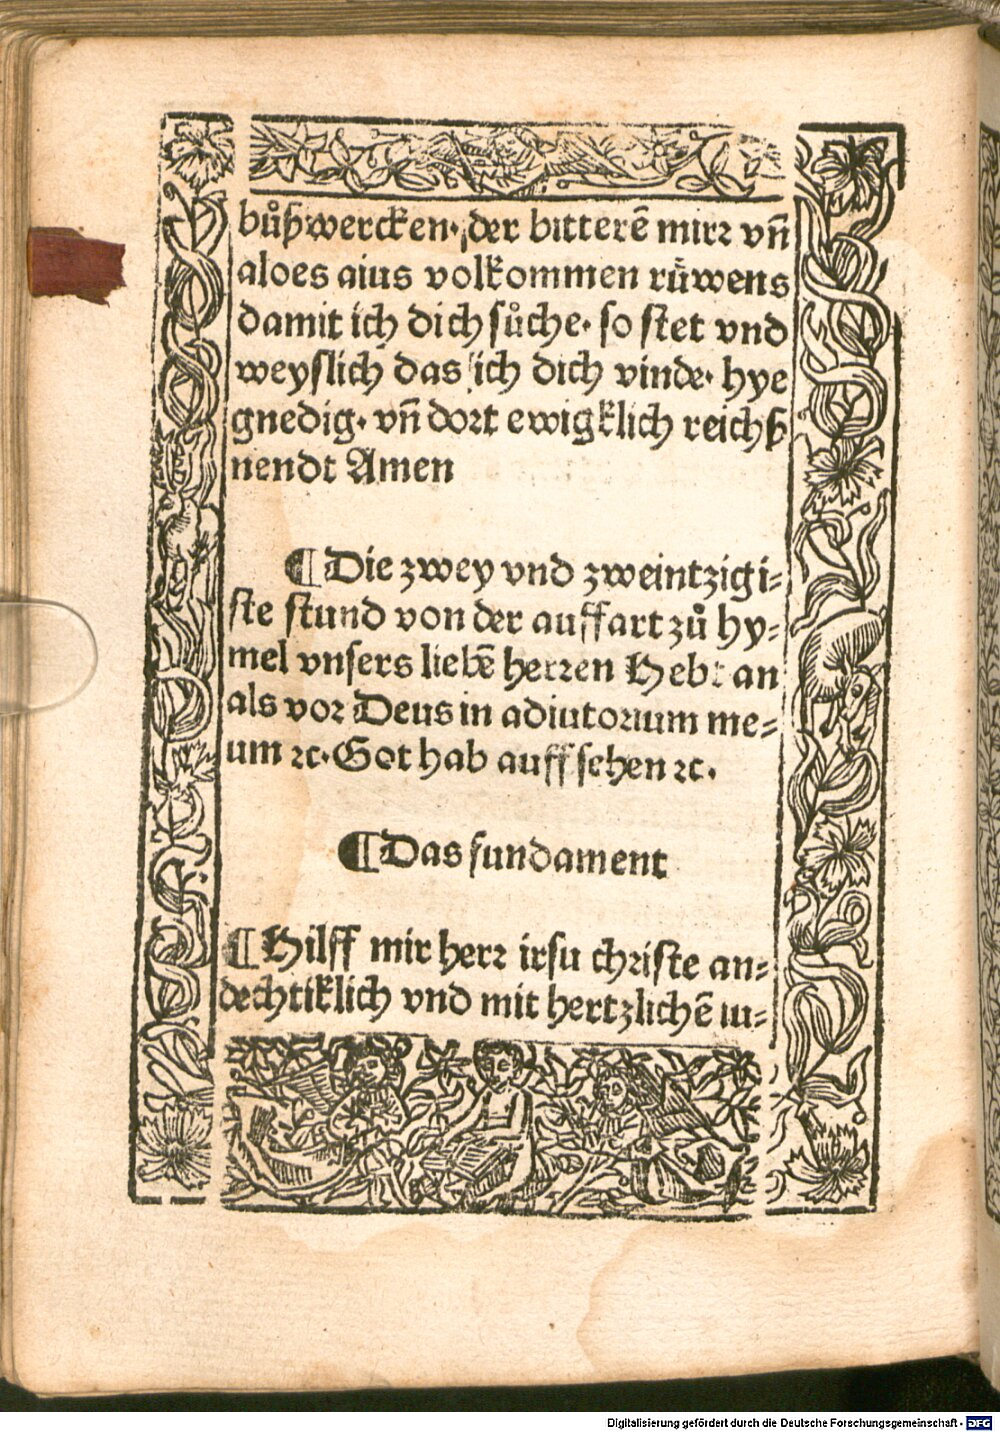 bůßwercken. der bitterē mirr vñ
aloes aius volkommen rüwens
damit ich dich sůche. so stet vnd
weyslich das ich dich vinde. hye
gnedig. vñ dort ewigklich reichß
nendt Amen
¶ Die zwey vnd zweintzigi=
ste stund von der auffart zů hy=
mel vnsers liebē herren Hebt an
als vor Deus in adiutorium me=
um ꝛc. Got hab auff sehen ꝛc.
¶ Das fundament
¶ Hilff mir herr iesu christe an=
dechtiklich vnd mit hertzlichē iu=
Digitalisierung gefördert durch die Deutsche Forschungsgemeinschaft - DFG